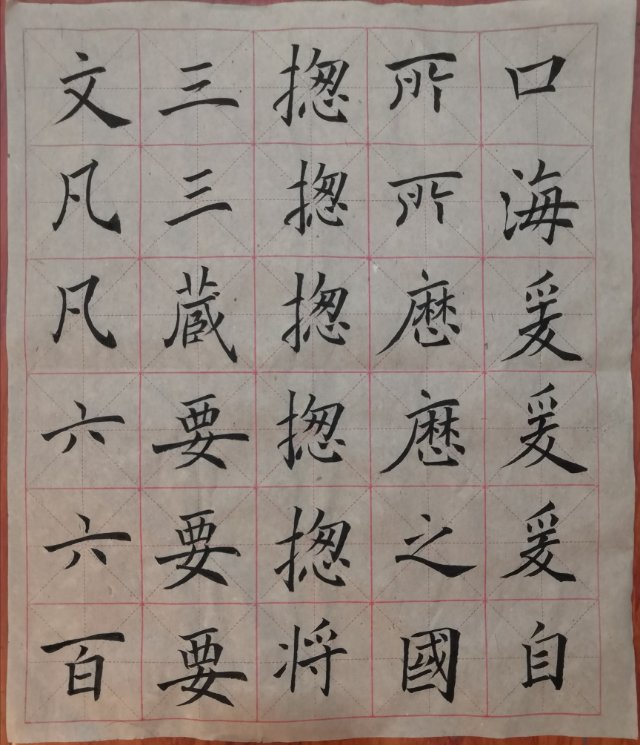 口海爰爰爰自
所所歷歷之國
揔揔揔揔揔将
三三蔵要要要
文凡凡六六百